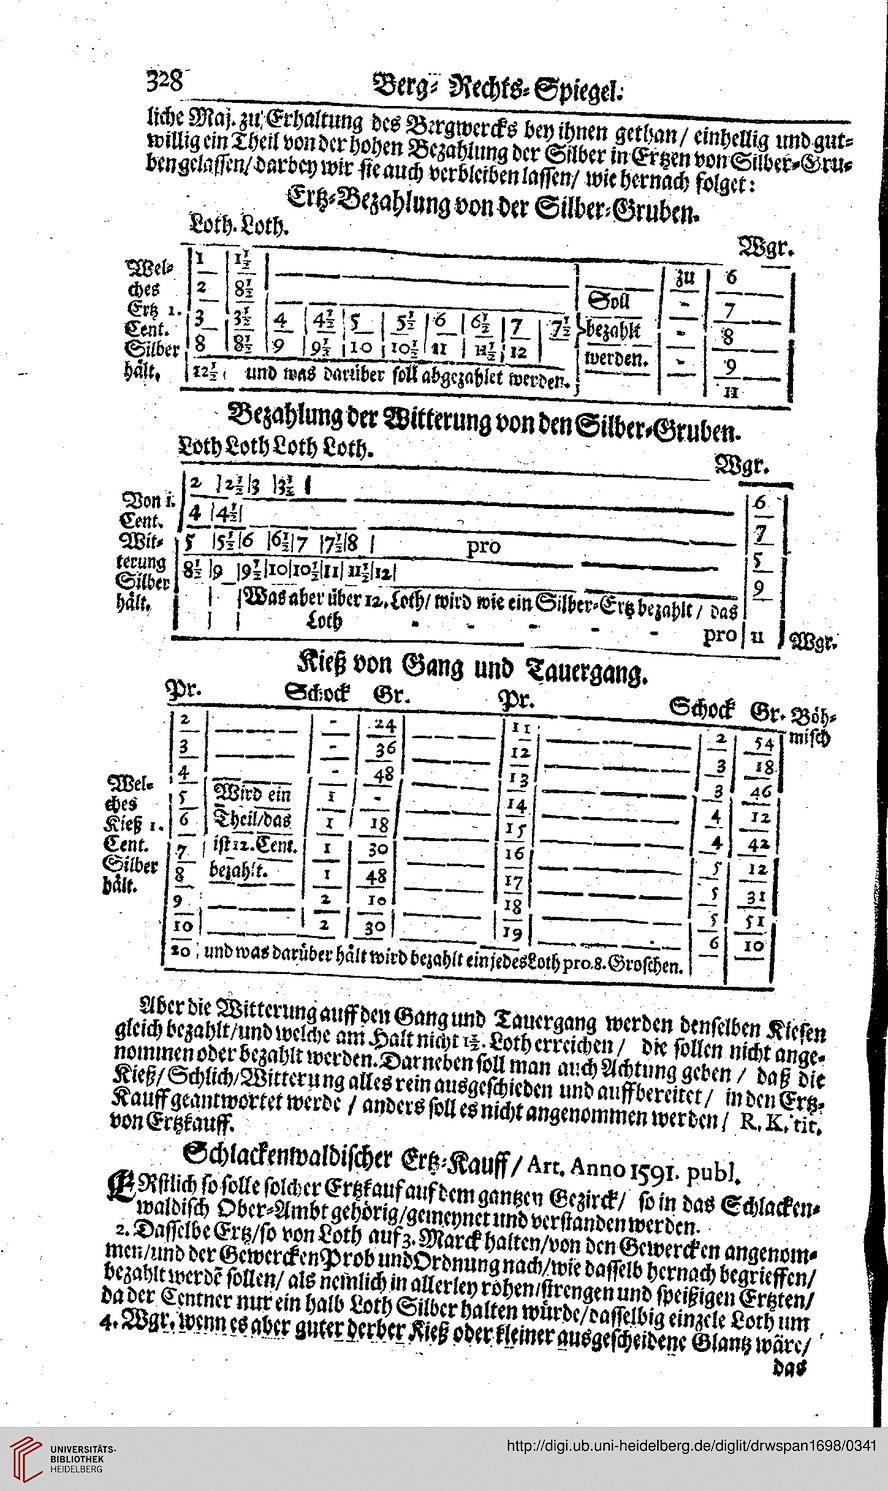 328 Berg- Rechts-Spiegel.
liche Maj. zu Erhaltung des Bergwercks bey ihnen gethan / einhellig und gut-
willig ein Theil von der hohen Bezahlung der Silber in Ertzen von Silber-Gru-
ben gelassen/ darbey wir sie auch verbleiben lassen/ wie hernach folget:
Ertz-Bezahlung von der Silber-Gruben.
Loth. Loth. Wgr.
Wel-
ches
Ertz 1.
Cent.
Silber
hält,
1 1½ zu 6
2 8½ Soll - 7
3 3½ 4 4½ 5 5½ 6 6½ 7 7½ bezahlt - 8
8 8½ 9 9½ 10 10½ 11 11½ 12 werden. - 9
12½ und was darüber soll abgezahlet werden. 11
Bezahlung der Witterung von den Silber-Gruben.
Loth Loth Loth Loth. Wgr.
Von 1.
Cent.
Wit-
terung
Silber
hält.
2 2½ 3 3½ 6
4 4½ 7
5 5½ 6 6½ 7 7½ 8 pro 5
8½ 9 9½ 10 10½ 11 11½ 12 9
Was aber über 12. Loth/ wird wie ein Silber-Ertz bezahlt / das
Loth - - - - - pro 11 Wgr.
Kieß von Gang und Tauergang.
Pr. Schock Gr. Pr. Schock Gr. Böh-
misch
Wel-
ches
Kieß 1.
Cent.
Silber
hält.
2 - 24 11 2 54
3 - 36 12 3 18
4 - 48 13 3 46
5 Wird ein 1 - 14 4 12
6 Theil/das 1 18 15 4 42
7 ist 12. Cent. 1 30 16 5 12
8 bezahlt. 1 48 17 5 31
9 2 10 18 5 51
10 2 30 19 6 10
20 und was darüber hält wird bezahlt ein jedes Loth pro. 8. Groschen.
Aber die Witterung auff den Gang und Tauergang werden denselben Kiesen
gleich bezahlt/und welche am Halt nicht 1½. Loth erreichen / die sollen nicht ange-
nommen oder bezahlt werden. Darneben soll man auch Achtung geben / daß die
Kieß/ Schlich/ Witterung alles rein ausgeschieden und auffbereitet / in den Ertz-
Kauff geantwortet werde / anders soll es nicht angenommen werden / R. K. tit.
von Ertzkauff.
Schlackenwaldischer Ertz-Kauff / Art. Anno 1591. publ.
ERstlich so solle solcher Ertzkauf auf dem gantzen Gezirck/ so in das Schlacken-
waldisch Ober-Ambt gehörig/gemeynet und verstanden werden.
2. Dasselbe Ertz/so von Loth auf 3. Marck halten/von den Gewercken angenom-
men/und der Gewercken Prob und Ordnung nach/wie dasselb hernach begrieffen/
bezahlt werdē sollen/ als nemlich in allerley rohen/strengen und speißigen Ertzten/
da der Centner nur ein halb Loth Silber halten würde/dasselbig einzele Loth um
4. Wgr. wenn es aber guter derber Kieß oder kleiner ausgescheidene Glantz wäre/
das
UNIVERSITÄTS-
BIBLIOTHEK
HEIDELBERG
http://digi.ub.uni-heidelberg.de/diglit/drwspan1698/0341